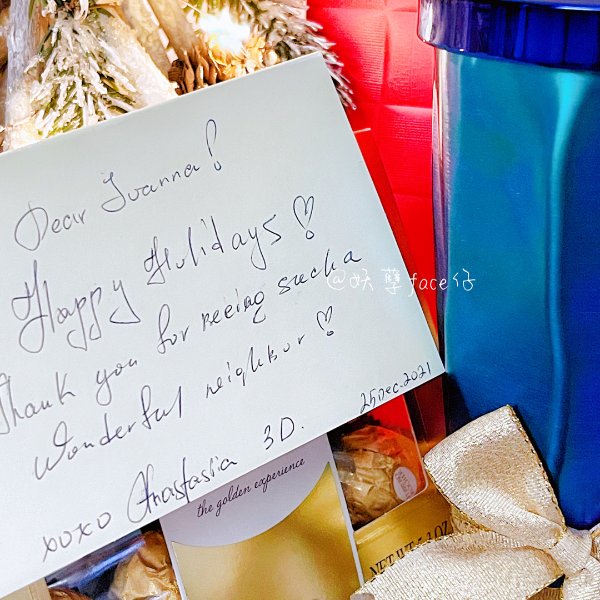 Dear Ivanna!
Happy Holidays♡!
Thank you for being such a
wonderful neighbor♡!
25Dec.2021
xoxo Anastasiia 3D.
@妖孽face仔
the golden experience
NET WT 5.3 OZ